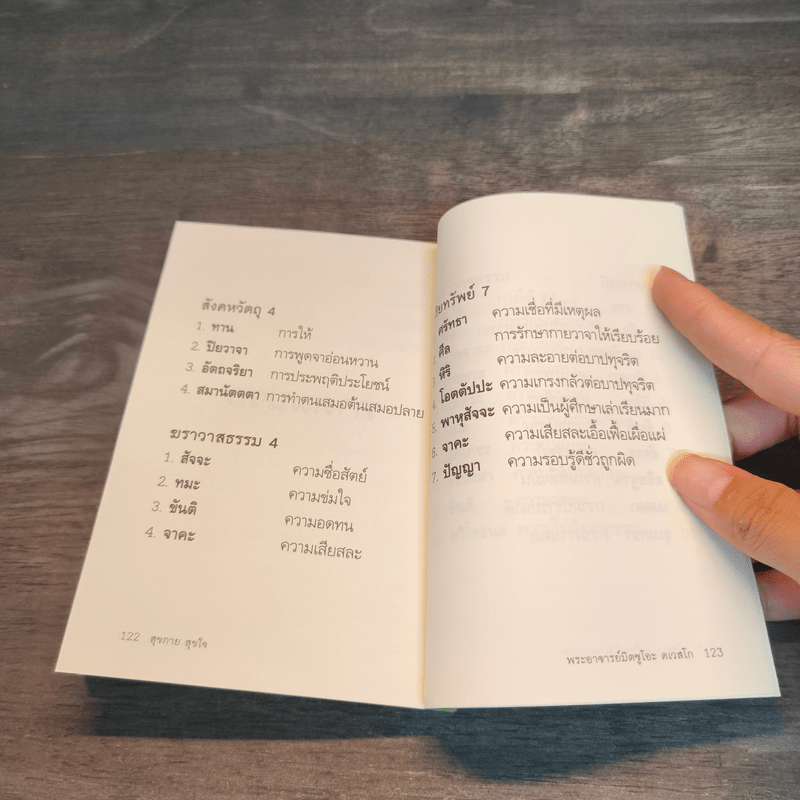 สังคหวัตถุ 4
1. ทาน การให้
2. ปิยวาจา การพูดจาอ่อนหวาน
3. อัตถจริยา การประพฤติประโยชน์
4. สมานัตตตา การทำตนเสมอต้นเสมอปลาย
ฆราวาสธรรม 4
1. สัจจะ ความซื่อสัตย์
2. ทมะ ความข่มใจ
3. ขันติ ความอดทน
4. จาคะ ความเสียสละ
122 สุขกาย สุขใจ
ยทรัพย์ 7
ศรัทธา ความเชื่อที่มีเหตุผล
ศีล การรักษากายวาจาให้เรียบร้อย
หิริ ความละอายต่อบาปทุจริต
4. โอตตัปปะ ความเกรงกลัวต่อบาปทุจริต
5. พาหุสัจจะ ความเป็นผู้ศึกษาเล่าเรียนมาก
6. จาคะ ความเสียสละเอื้อเฟื้อเผื่อแผ่
7. ปัญญา ความรอบรู้ดีชั่วถูกผิด
พระอาจารย์มิตซูโอะ คเวสโก 123